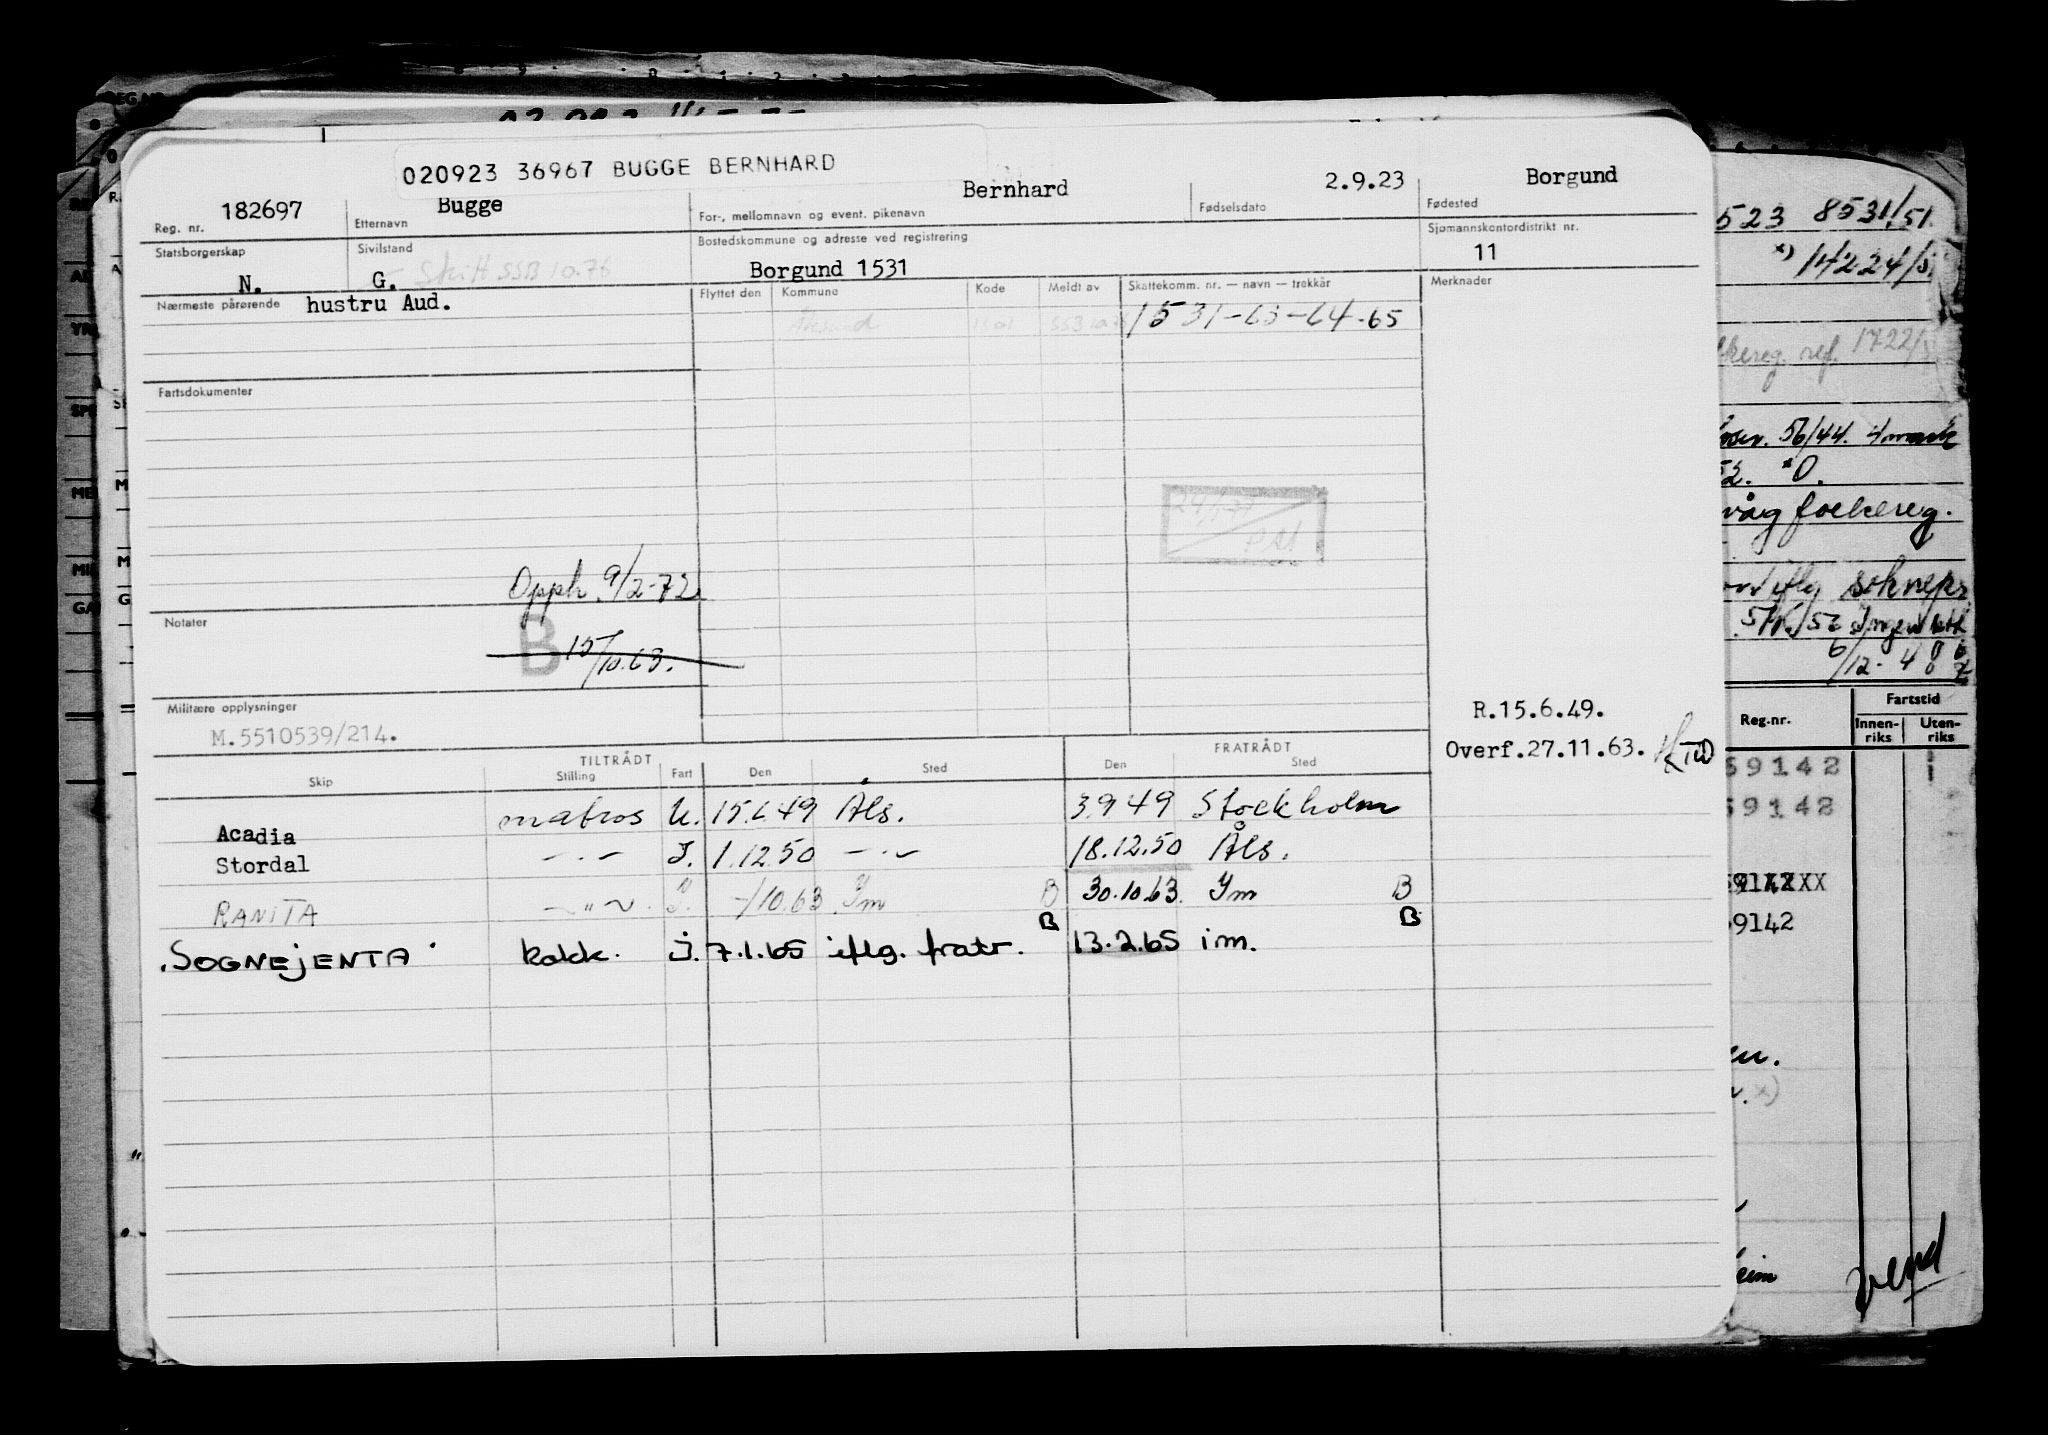 020923 36967 BUGGE BERNHARD
Reg. nr. 182697
Etternavn Bugge
For-, mellomnavn og event. pikenavn Bernhard
Fødselsdato 2.9.23
Fødested Borgund
Statsborgerskap N.
Sivilstand G. Skilt SSB 10.76
Bostedskommune og adresse ved registrering Borgund 1531
Sjømannskontordistrikt nr. 11
Nærmeste pårørende hustru Aud.
Flyttet den Kommune Kode Meldt av Skattekomm. nr. — navn — trekkår
Ålesund 1501 SSB 10.76 1531-63-64-65
Merknader
Fartsdokumenter
Opph. 9/2-72
Notater
B 15/10.63.
Militære opplysninger
M.5510539/214.
R.15.6.49.
Overf.27.11.63.
TILTRÅDT FRATRÅDT
Skip Stilling Fart Den Sted Den Sted
Acadia matros U. 15.6.49 Åls. 3.9.49 Stockholm
Stordal -.- I. 1.12.50 -.- 18.12.50 Åls.
RANITA -"- I. -/10.63 Ym B 30.10.63. Ym B
B B
"SOGNEJENTA" kokk. i. 7.1.65 iflg. fratr. 13.2.65 im.
523 8531/51.
x) 14224/5
ref. 1722/5
56/44. 4 mark
52. x0.
våg folkereg.
6/12-48
Reg.nr.
Fartstid
Innenriks
Utenriks
59142
59142
59142
vend